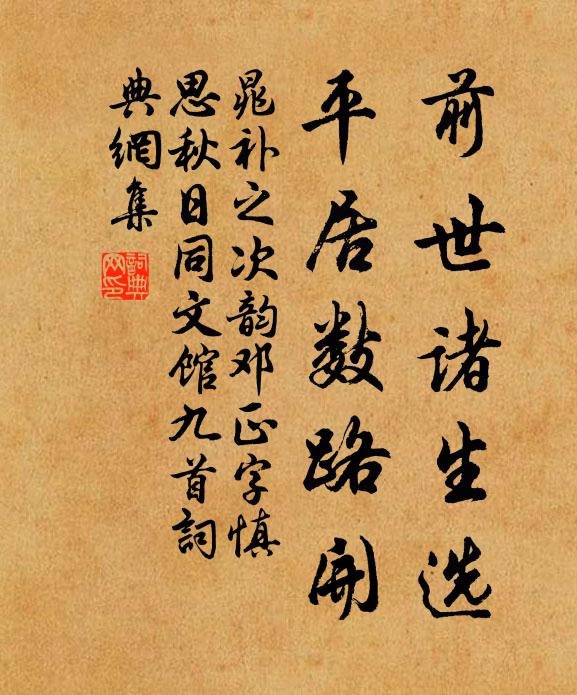 前世诸生选
平居数路开
晁补之次韵邓正字慎
思秋日同文馆九首词
典網集
詞典網印